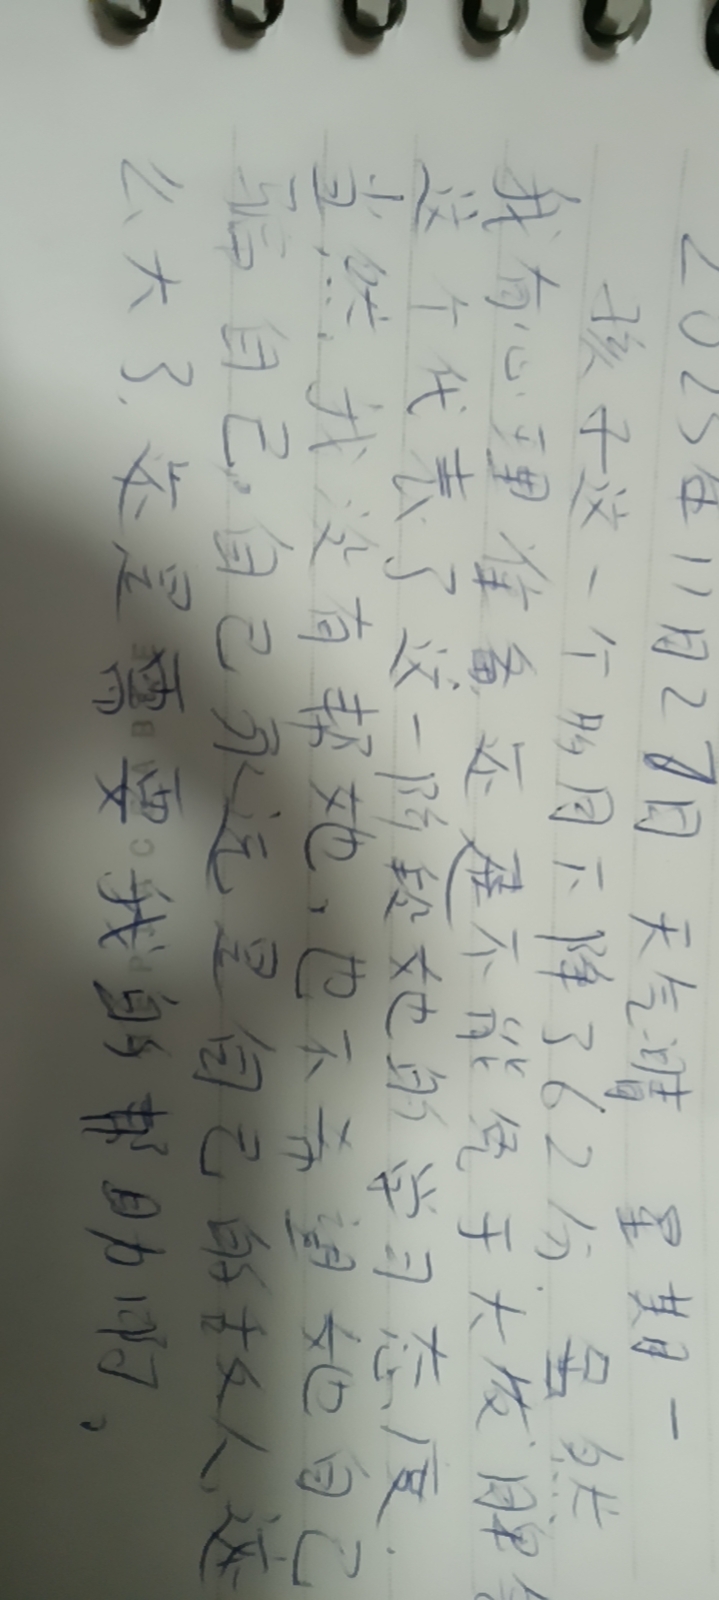 2025年11月27日 天气晴 星期一
孩子这一个多月下降了62分.虽然
我有心理准备还是不能免于大发脾
这个代表了这一阶段她的学习态度.
当然,我没有帮她,也不希望她自己
骗自己。自己永远是自己的敌人,这
么大了,还是需要我的帮助啊,